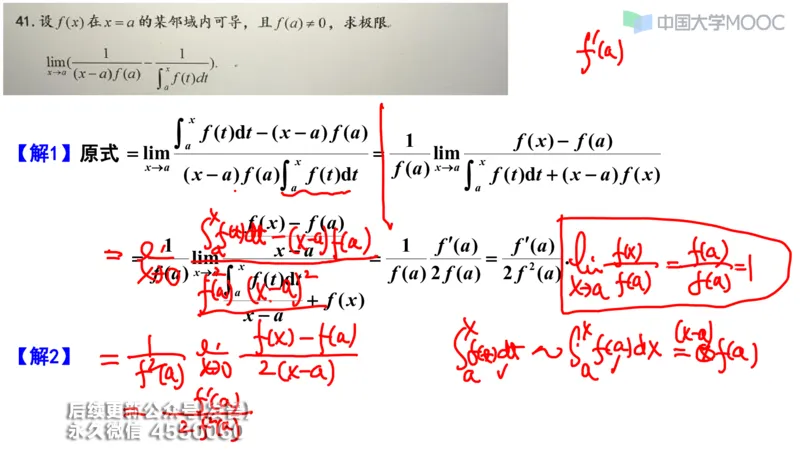 中国大学MOOC
41. 设 f(x) 在 x = a 的某邻域内可导，且 f(a) ≠ 0，求极限
lim_{x→a} ( 1/((x−a)f(a)) − 1/∫_a^x f(t)dt ).
f'(a)
【解1】原式 = lim_{x→a} (∫_a^x f(t)dt − (x−a)f(a)) / ((x−a)f(a)∫_a^x f(t)dt) = 1/f(a) lim_{x→a} (f(x) − f(a)) / (∫_a^x f(t)dt + (x−a)f(x))
= 1/f(a) lim_{x→a} ((f(x) − f(a))/(x−a)) / (∫_a^x f(t)dt/(x−a) + f(x)) = 1/f(a) f'(a)/2f(a) = f'(a)/2f²(a).
= lim_{x→0} (∫_a^x f(t)dt − (x−a)f(a)) / (f²(a)(x−a)²)
lim_{x→a} f(x)/f(a) = f(a)/f(a) = 1
【解2】 = 1/f²(a) lim_{x→0} (f(x) − f(a)) / 2(x−a)
∫_a^x f(t)dt ~ ∫_a^x f(a)dx = (x−a) f(a)
= f'(a)/2f²(a)
永久微信 4550060